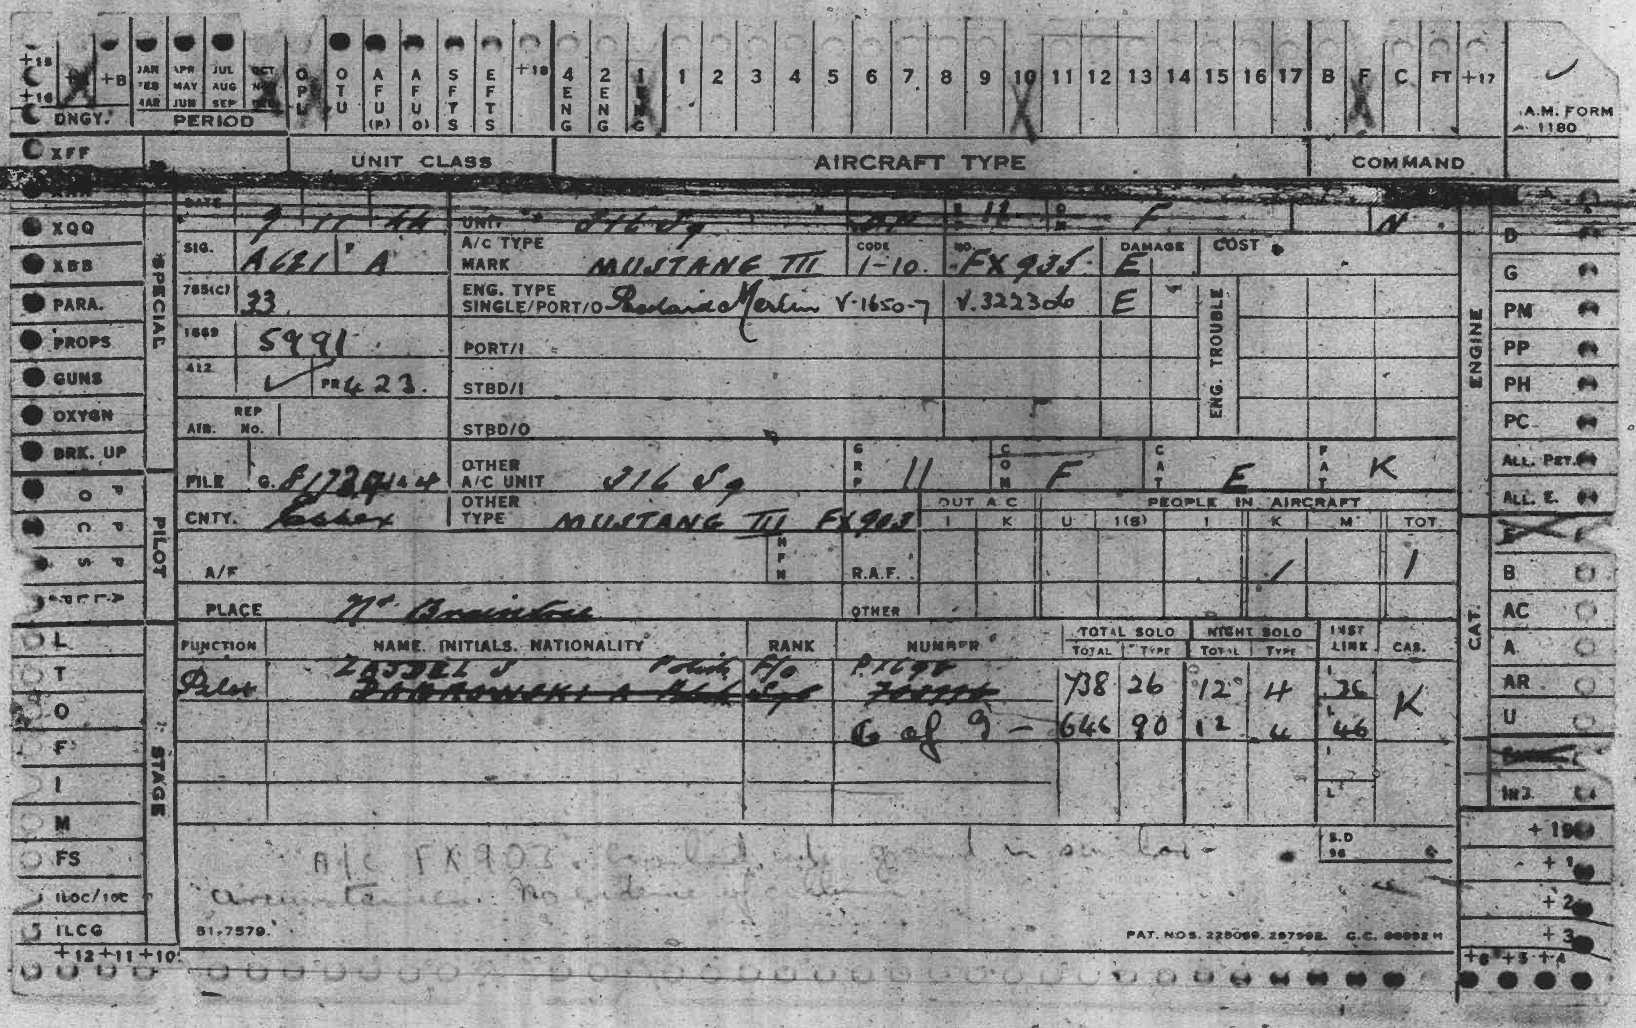 +15 +B JAN FEB MAR APR MAY JUN JUL AUG SEP OCT OPU OTU AFU (P) AFU (O) SFTS EFTS +18 4 ENG 2 ENG 1 ENG 1 2 3 4 5 6 7 8 9 10 11 12 13 14 15 16 17 B F C FT +17
+16 DNGY. PERIOD A.M. FORM 1180
XFF UNIT CLASS AIRCRAFT TYPE COMMAND
DATE 9 11 44 UNIT 316 Sq 11 F N
XQQ
SIG. A621 F A A/C TYPE MARK MUSTANG III CODE 1-10. NO. FX935 DAMAGE E COST
XBB
765(C) 33 ENG. TYPE SINGLE/PORT/O Packard Merlin V-1650-7 V.322306 E
PARA.
1669 5991 PORT/I
PROPS
412 PR 423. STBD/I
GUNS
AIB. REP No. STBD/O
OXYGN
BRK. UP
SPECIAL
ENG. TROUBLE
ENGINE
D
G
PM
PP
PH
PC
ALL. PET.
ALL. E.
FILE G. OTHER A/C UNIT 316 Sq GRP 11 COM F CAT E FAT K
CNTY. Essex OTHER TYPE MUSTANG III FX903 OUT A C PEOPLE IN AIRCRAFT
I K U I(S) I K M TOT.
A/F R.A.F. 1 1
PLACE Nr Braintree OTHER
PILOT
STAGE
CAT.
B
AC
A
AR
U
INJ.
FUNCTION NAME. INITIALS. NATIONALITY RANK NUMBER TOTAL SOLO NIGHT SOLO INST LINK CAS.
TOTAL TYPE TOTAL TYPE
Polish F/O P.1698
Pilot DABROWSKI A 738 26 12 4 I 36 K
6 of 9 - 646 90 12 4 L 46
I
L
L
T
O
F
I
M
FS
ILOC/10C
ILCG
S.D 96
A/C FX903. crashed into ground in similar
circumstances. No evidence of
51-7579. PAT. NOS. 225069. 257992.
+12 +11 +10
+19
+1
+2
+3
+6 +5 +4